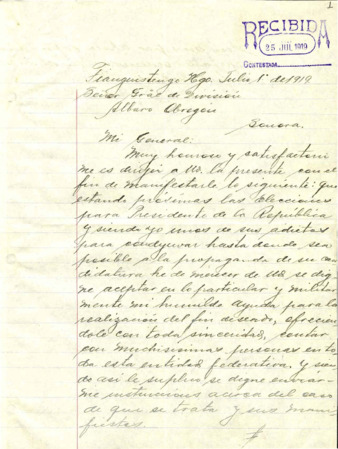 1
RECIBIDA
25 JUL 1919
CONTESTADA
Tianguistengo Hgo. Julio 1º de 1919
Señor Gral de División
Alvaro Obregón
Sonora.
Mi General:
Muy honroso y satisfactorio
me es dirigir a Ud. la presente con el
fin de manifestarle lo siguiente: que
estando próximas las elecciones
para Presidente de la República
y siendo yo unos de sus adictos
para coadyuvar hasta donde sea
posible a la propaganda de su can
didatura he de merecer de Ud. se dig
ne aceptar en lo particular y militar
mente mi humilde ayuda para la
realización del fin diseado, ofrecien
dole con toda sinceridad, contar
con muchisimas personas en to
da esta entidad federativa, y sien
do asi le suplico se digne enviar-
me instrucciones acerca del caso
de que se trata y sus mani
fiestos.